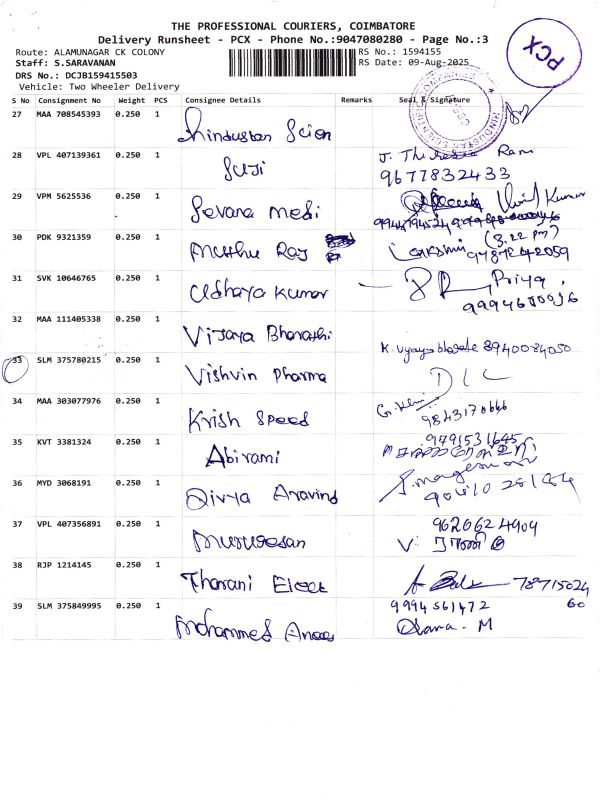 THE PROFESSIONAL COURIERS, COIMBATORE
Delivery Runsheet - PCX - Phone No.:9047080280 - Page No.:3
Route: ALAMUNAGAR CK COLONY
RS No.: 1594155
Staff: S.SARAVANAN
RS Date: 09-Aug-2025
DRS No.: DCJB159415503
Vehicle: Two Wheeler Delivery
PCX
S No Consignment No Weight PCS Consignee Details Remarks Seal & Signature
27 MAA 708545393 0.250 1 Hindustan Scien
28 VPL 407139361 0.250 1 Suji J. Theresa Rani
9677832433
29 VPM 5625536 0.250 1 Sevana medi Kumar
30 PDK 9321359 0.250 1 Muthu Raj Lakshmi (3.22 pm)
9787242059
31 SVK 10646765 0.250 1 Udhaya Kumar Priya
32 MAA 111405338 0.250 1 Vijaya Bharathi
8940084050
33 SLM 375780215 0.250 1 Vishvin Pharma DLC
34 MAA 303077976 0.250 1 Krish Speed
9843178666
35 KVT 3381324 0.250 1 Abirami 9491531645
36 MYD 3068191 0.250 1 Divya Aravind
37 VPL 407356891 0.250 1 Murugesan 9626624909
V. ராணி
38 RJP 1214145 0.250 1 Tharani Elect 78715024
60
39 SLM 375849995 0.250 1 Mohammed Anas 9994561472